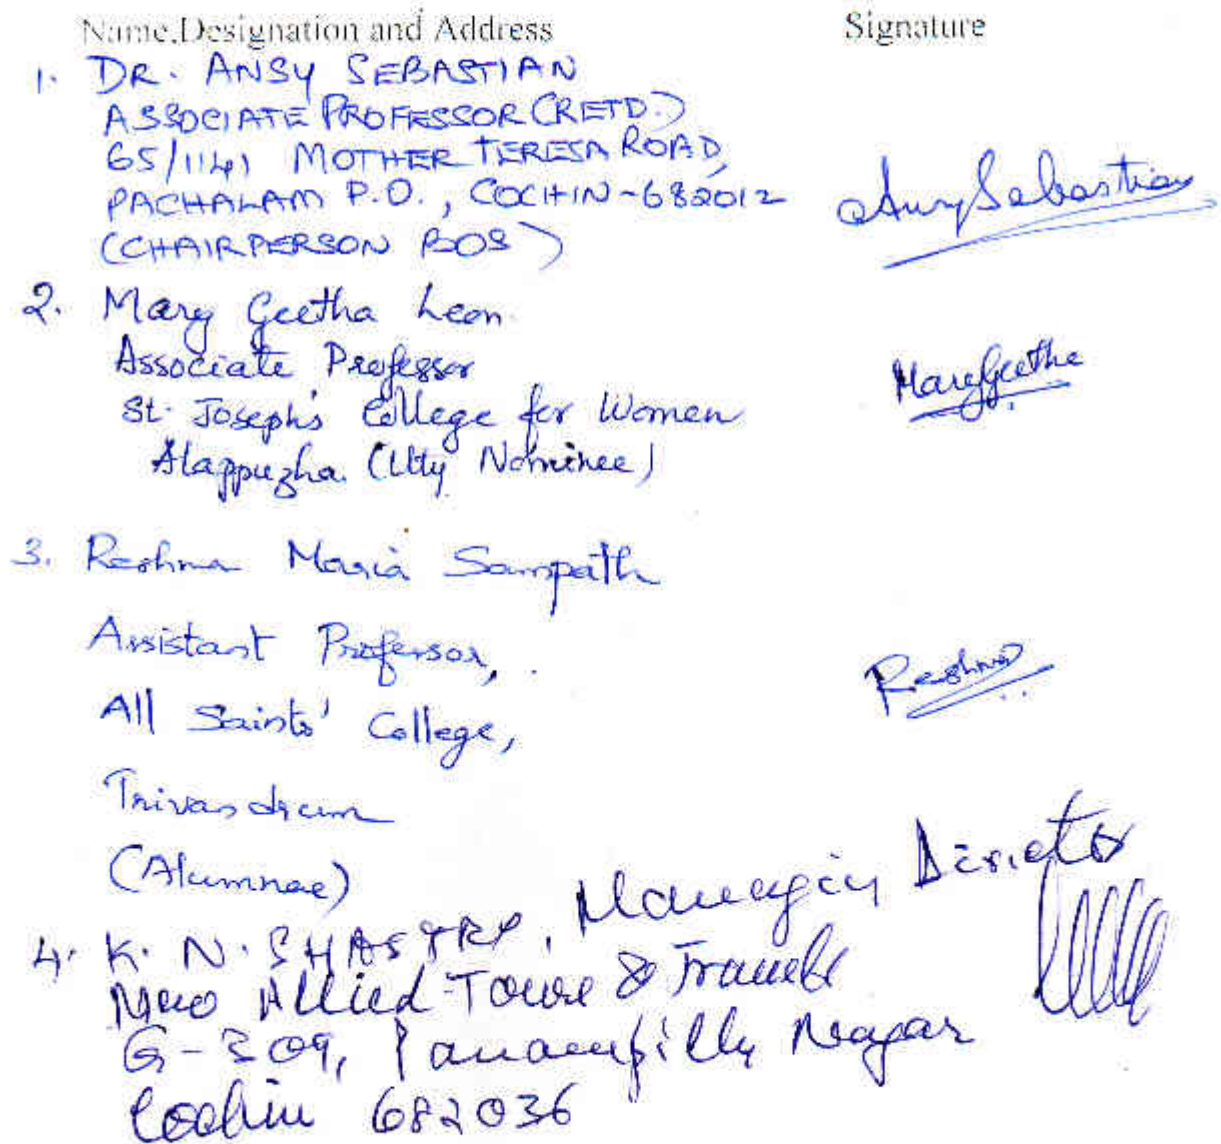 Name,Designation and Address Signature
1. DR. ANSY SEBASTIAN
ASSOCIATE PROFESSOR (RETD.)
65/1141 MOTHER TERESA ROAD,
PACHALAM P.O., COCHIN-682012
AnsySebastian
(CHAIRPERSON BOS)
2. Mary Geetha Leon
Associate Professor
MaryGeetha
St. Joseph's College for Women
Alappuzha (Uty Nominee)
3. Reshma Maria Sampath
Assistant Professor,
Reshma
All Saints' College,
Trivandrum
(Alumnae)
4. K. N. SHASTRY, Managing Director
New Allied Tours & Travels
G-309, Panampilly Nagar
Cochin 682036